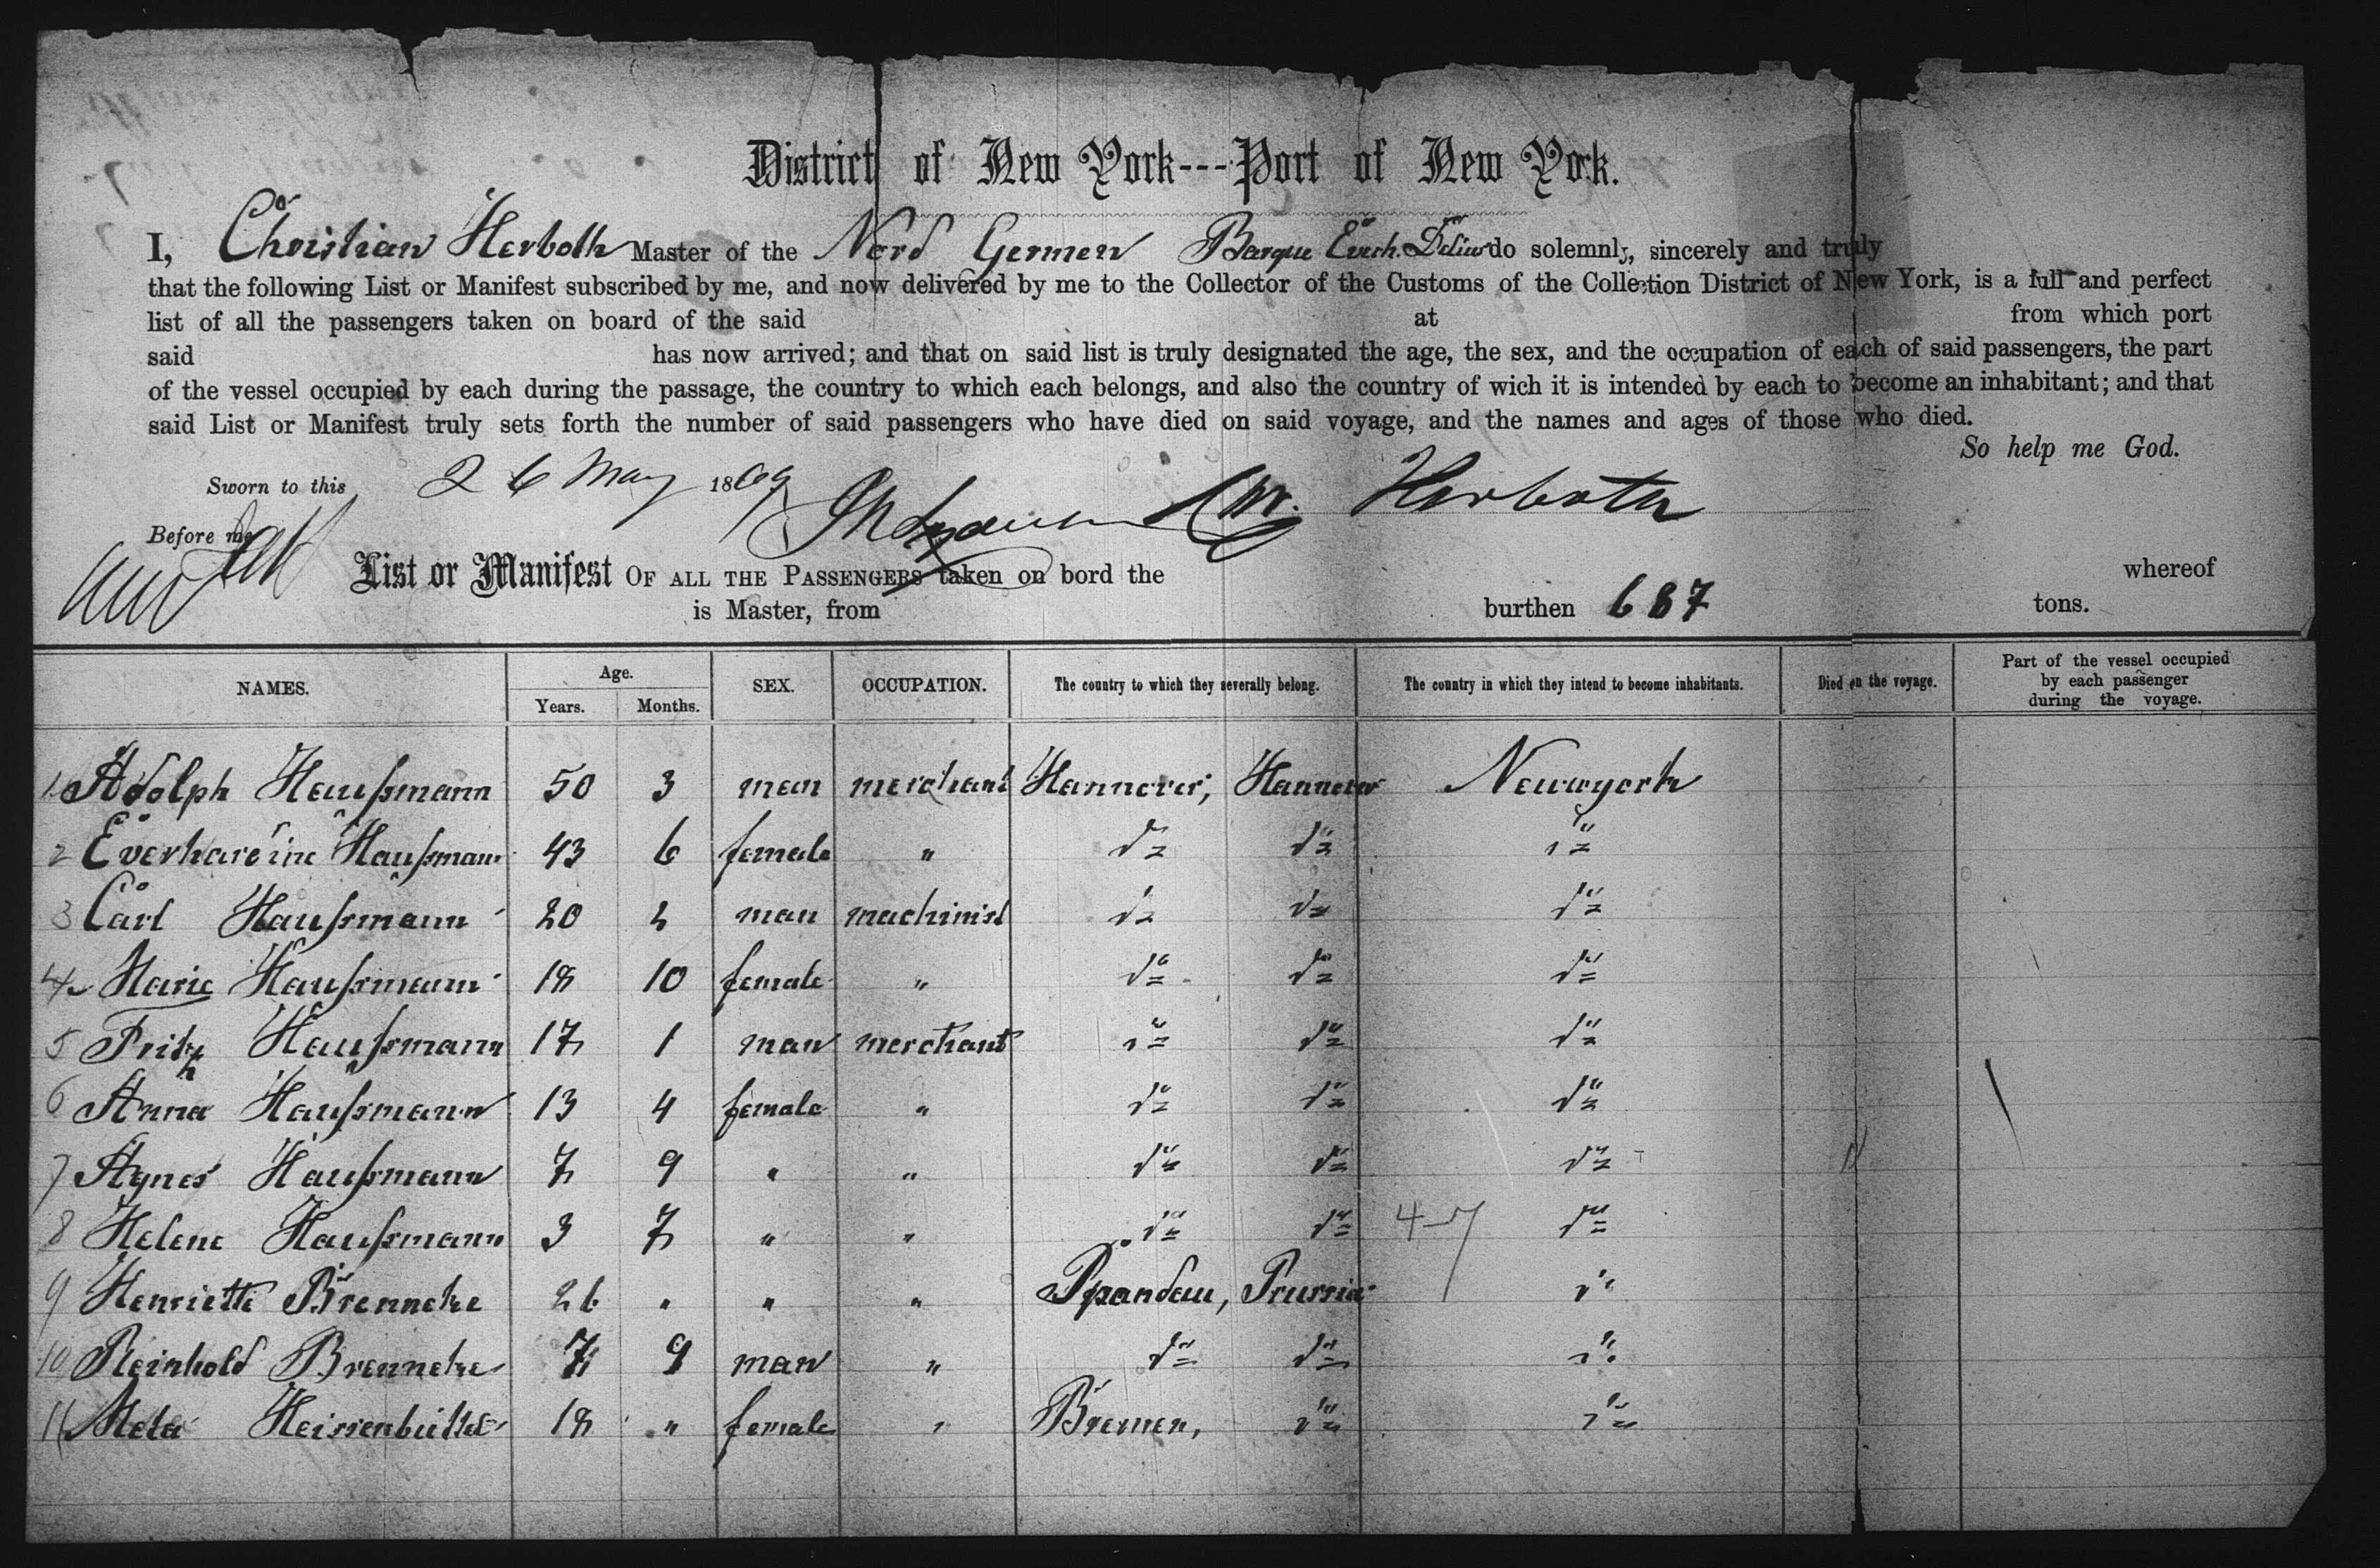 District of New York---Port of New York.
I, Christian Herboth Master of the Nord Germen Barque Everh. Delius do solemnly, sincerely and truly
that the following List or Manifest subscribed by me, and now delivered by me to the Collector of the Customs of the Collection District of New York, is a full and perfect
list of all the passengers taken on board of the said at from which port
said has now arrived; and that on said list is truly designated the age, the sex, and the occupation of each of said passengers, the part
of the vessel occupied by each during the passage, the country to which each belongs, and also the country of wich it is intended by each to become an inhabitant; and that
said List or Manifest truly sets forth the number of said passengers who have died on said voyage, and the names and ages of those who died.
So help me God.
Sworn to this 26 May 1869 Herboth
Before me
List or Manifest OF ALL THE PASSENGERS taken on bord the whereof
is Master, from burthen 687 tons.
NAMES. Age. Years. Months. SEX. OCCUPATION. The country to which they severally belong. The country in which they intend to become inhabitants. Died on the voyage. Part of the vessel occupied by each passenger during the voyage.
1 Adolph Haußmann 50 3 man merchant Hannover, Hannover Newyork
2 Everhardine Haußmann 43 6 female " do do do
3 Carl Haußmann 20 2 man machinist do do do
4 Marie Haußmann 18 10 female " do do do
5 Fritz Haußmann 17 1 man merchant do do do
6 Anna Haußmann 13 4 female " do do do
7 Agnes Haußmann 7 9 " " do do do
8 Helene Haußmann 3 7 " " do do do
9 Henriette Brenneke 26 " " " Spandau, Prussia do
10 Reinhold Brenneke 7 9 man " do do do
11 Meta Heissenbüttel 18 " female " Bremen, do do